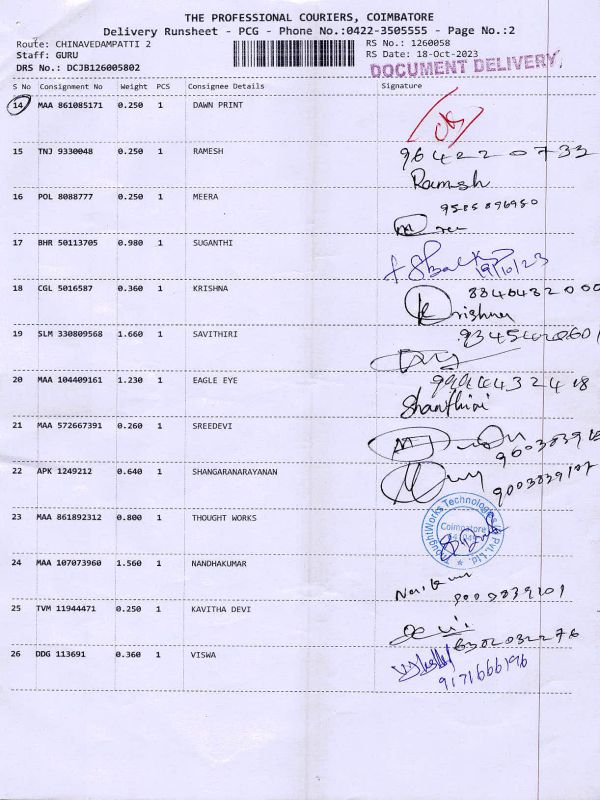 THE PROFESSIONAL COURIERS, COIMBATORE
Delivery Runsheet - PCG - Phone No.:0422-3505555 - Page No.:2
Route: CHINAVEDAMPATTI 2 RS No.: 1260058
Staff: GURU RS Date: 18-Oct-2023
DRS No.: DCJB126005802 DOCUMENT DELIVERY
S No Consignment No Weight PCS Consignee Details Signature
14 MAA 861085171 0.250 1 DAWN PRINT
15 TNJ 9330048 0.250 1 RAMESH 964220733
Ramesh
16 POL 8088777 0.250 1 MEERA 9585896980
17 BHR 50113705 0.980 1 SUGANTHI 19/10/23
18 CGL 5016587 0.360 1 KRISHNA
Krishna
19 SLM 330809568 1.660 1 SAVITHIRI
20 MAA 104409161 1.230 1 EAGLE EYE
21 MAA 572667391 0.260 1 SREEDEVI
22 APK 1249212 0.640 1 SHANGARANARAYANAN 9003839107
23 MAA 861892312 0.800 1 THOUGHT WORKS ThoughtWorks Technologies Pvt. Ltd. Coimbatore
24 MAA 107073960 1.560 1 NANDHAKUMAR
25 TVM 11944471 0.250 1 KAVITHA DEVI 6382032276
26 DDG 113691 0.360 1 VISWA
9171666196